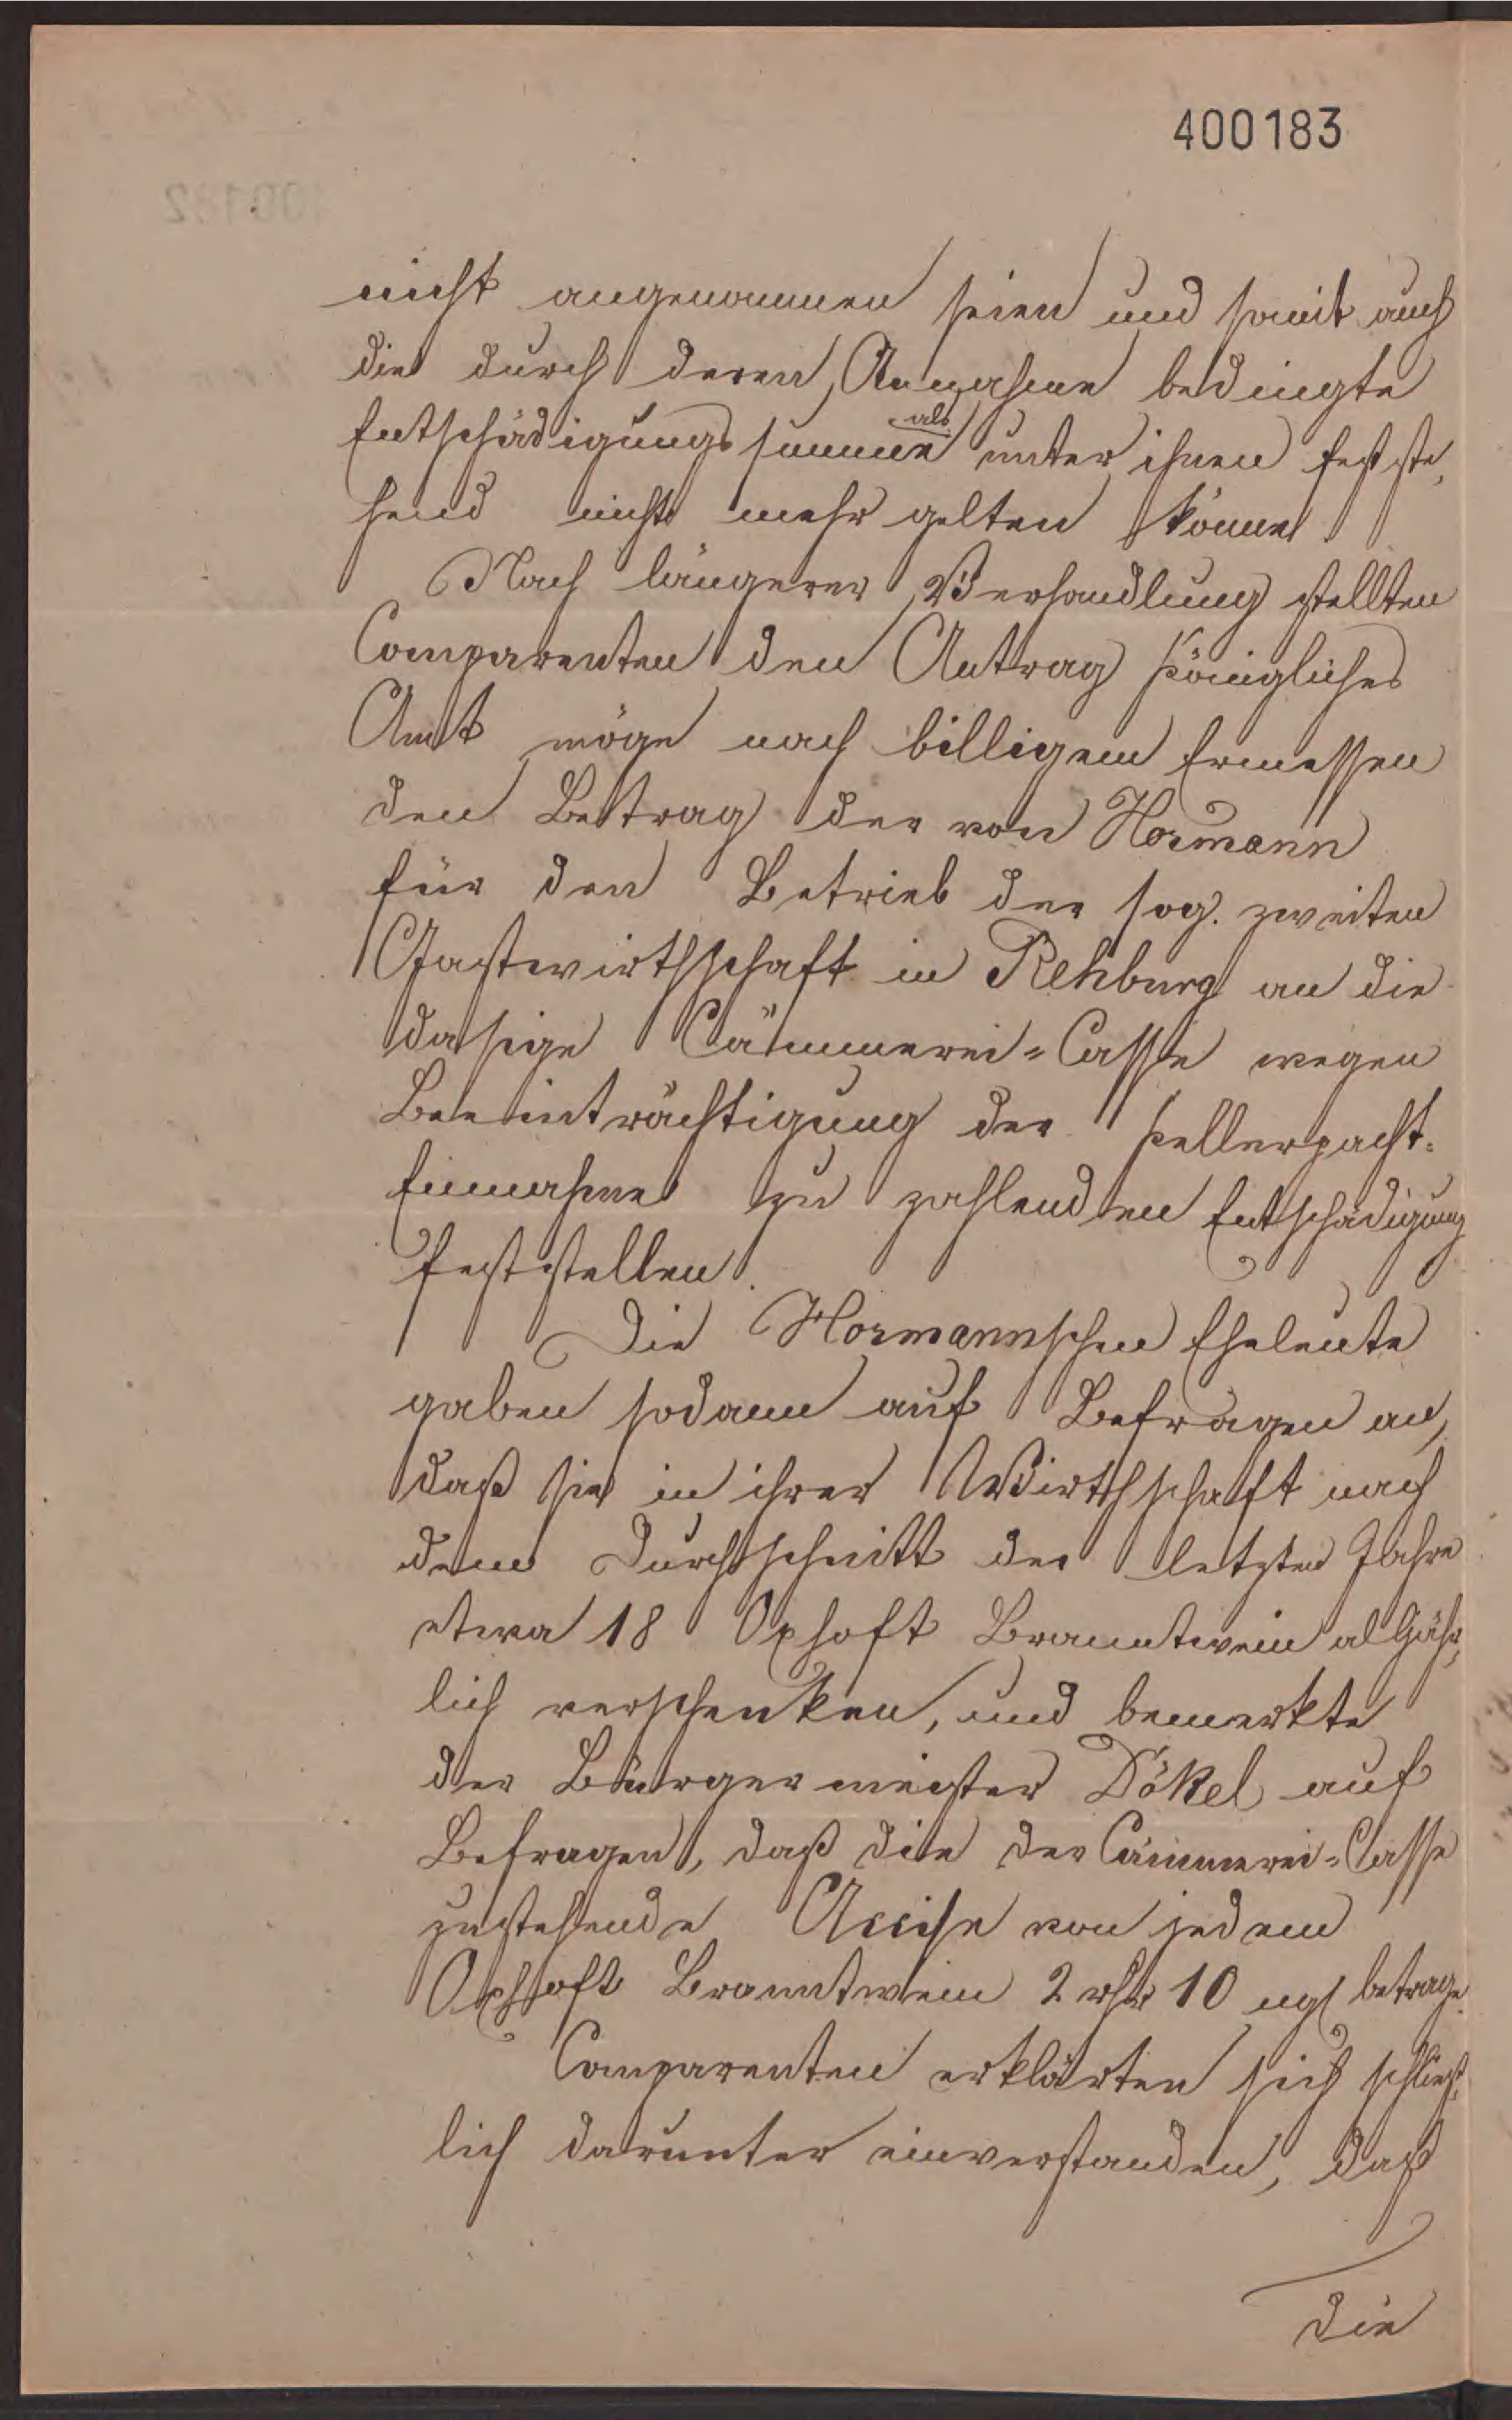 400183
nicht angenommen seien und somit auch
die durch deren Annahme bedingte
Entschädigungssumme als unter ihnen festste,
hend nicht mehr gelten könne.
Nach längerer Verhandlung stellten
Comparenten den Antrag Königliches
Amt möge nach billigem Ermessen
den Betrag der von Hormann
für den Betrieb der sog. zweiten
Gastwirthschaft in Rehburg an die
dasige Cämmerei-Casse wegen
Beeinträchtigung der Kellerpacht-
Einnahme zu zahlenden Entschädigung
feststellen.
Die Hormannschen Eheleute
gaben sodann auf Befragen an,
daß sie in ihrer Wirthschaft nach
dem Durchschnitt der letzten Jahre
etwa 18 Oxhoft Branntwein alljähr,
lich verschenken, und bemerkte
der Bürgermeister Dökel auf
Befragen, daß die der Cämmerei-Casse
zustehende Accise von jedem
Oxhoft Branntwein 2 rthr 10 ngl betrage.
Comparenten erklärten sich schließ,
lich darunter einverstanden, daß
die